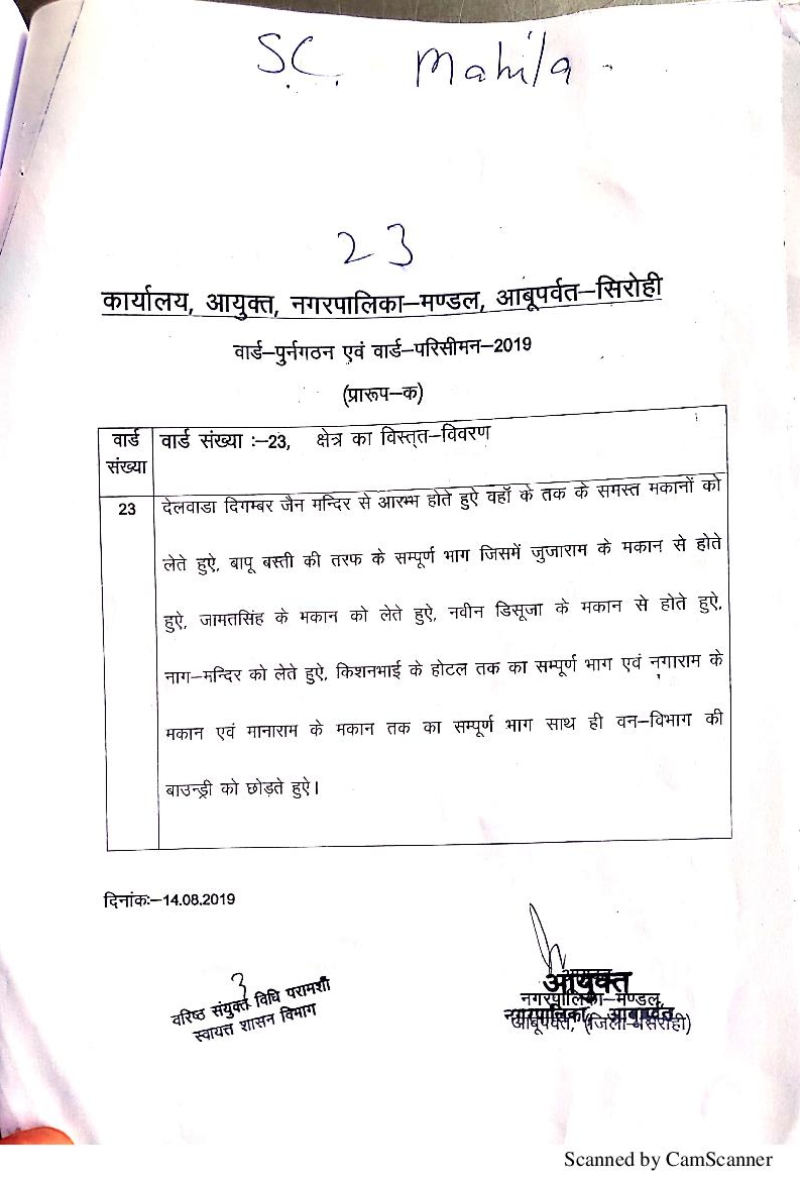 S.C. Mahila
23
कार्यालय, आयुक्त, नगरपालिका–मण्डल, आबूपर्वत–सिरोही
वार्ड–पुर्नगठन एवं वार्ड–परिसीमन–2019
(प्रारूप–क)
वार्ड संख्या
वार्ड संख्या :–23, क्षेत्र का विस्तृत–विवरण
23
देलवाडा दिगम्बर जैन मन्दिर से आरम्भ होते हुऐ वहाँ के तक के समस्त मकानों को
लेते हुऐ, बापू बस्ती की तरफ के सम्पूर्ण भाग जिसमें जुजाराम के मकान से होते
हुऐ, जामतसिंह के मकान को लेते हुऐ, नवीन डिसूजा के मकान से होते हुऐ,
नाग–मन्दिर को लेते हुऐ, किशनभाई के होटल तक का सम्पूर्ण भाग एवं नगाराम के
मकान एवं मानाराम के मकान तक का सम्पूर्ण भाग साथ ही वन–विभाग की
बाउन्ड्री को छोड़ते हुऐ।
दिनांकः–14.08.2019
वरिष्ठ संयुक्त विधि परामर्शी
स्वायत्त शासन विभाग
आयुक्त
नगरपालिका–मण्डल,
नगरपालिका, आबूपर्वत
आबूपर्वत, (जिला–सिरोही)
Scanned by CamScanner